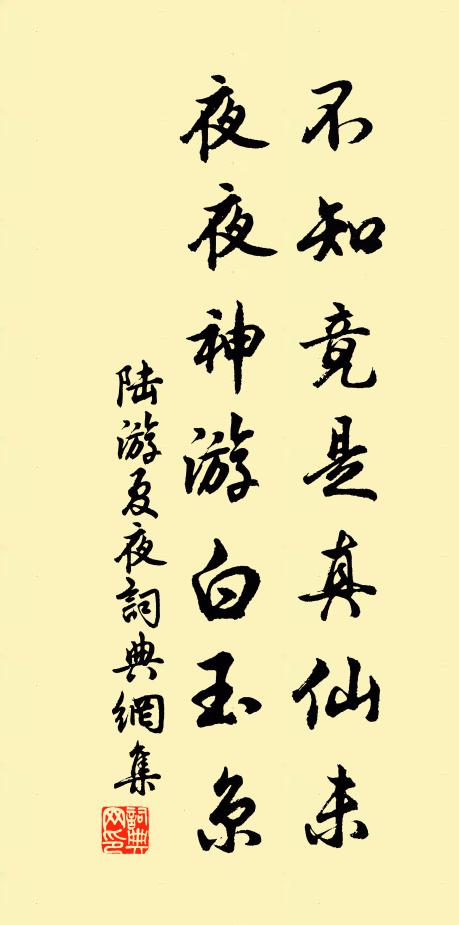 不知竟是真仙未
夜夜神游白玉京
陆游夏夜詞典網集
詞典
网印